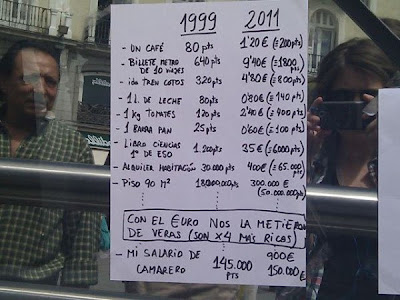 1999 2011
- UN CAFÉ 80 pts 1'20 € (= 200 pts)
- BILLETE METRO DE 10 VIAJES 640 pts 9'40 € (= 1800 pts)
- ida TREN COTOS 320 pts 4'80 € (= 800 pts)
- 1 L. DE LECHE 80 pts 0'80 € (= 140 pts)
- 1 kg TOMATES 120 pts 2'40 € (= 400 pts)
- 1 BARRA PAN 25 pts 0'60 € (= 100 pts)
- LIBRO CIENCIAS 1º DE ESO 1.200 pts 35 € (= 6000 pts)
- ALQUILER HABITACIÓN 30.000 pts 400 € (= 65.000 pts)
- PISO 90 M² 300.000 € (50.000.000 pts)
CON EL €URO NOS LA METIERON
DE VERAS (SON x4 MÁS RICOS)
- MI SALARIO DE CAMARERO 145.000 PTS 900 € 150.000 €